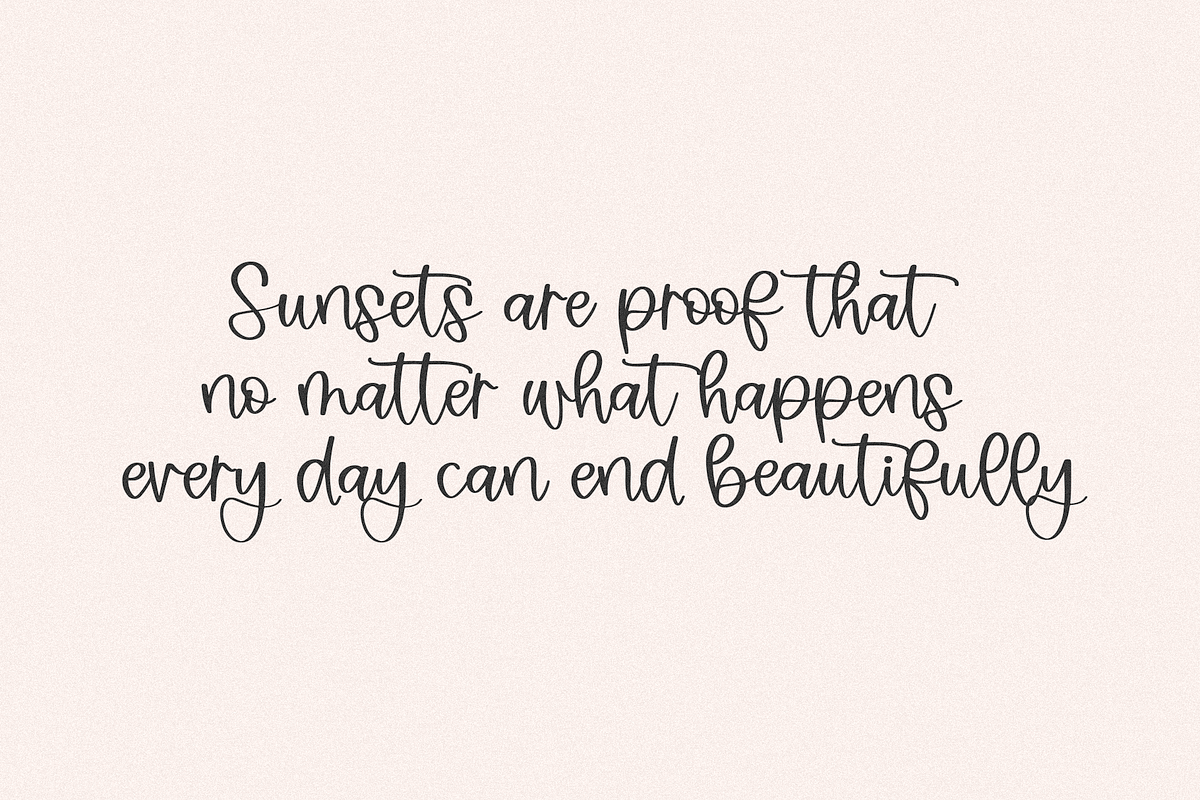 Sunsets are proof that
no matter what happens
every day can end beautifully